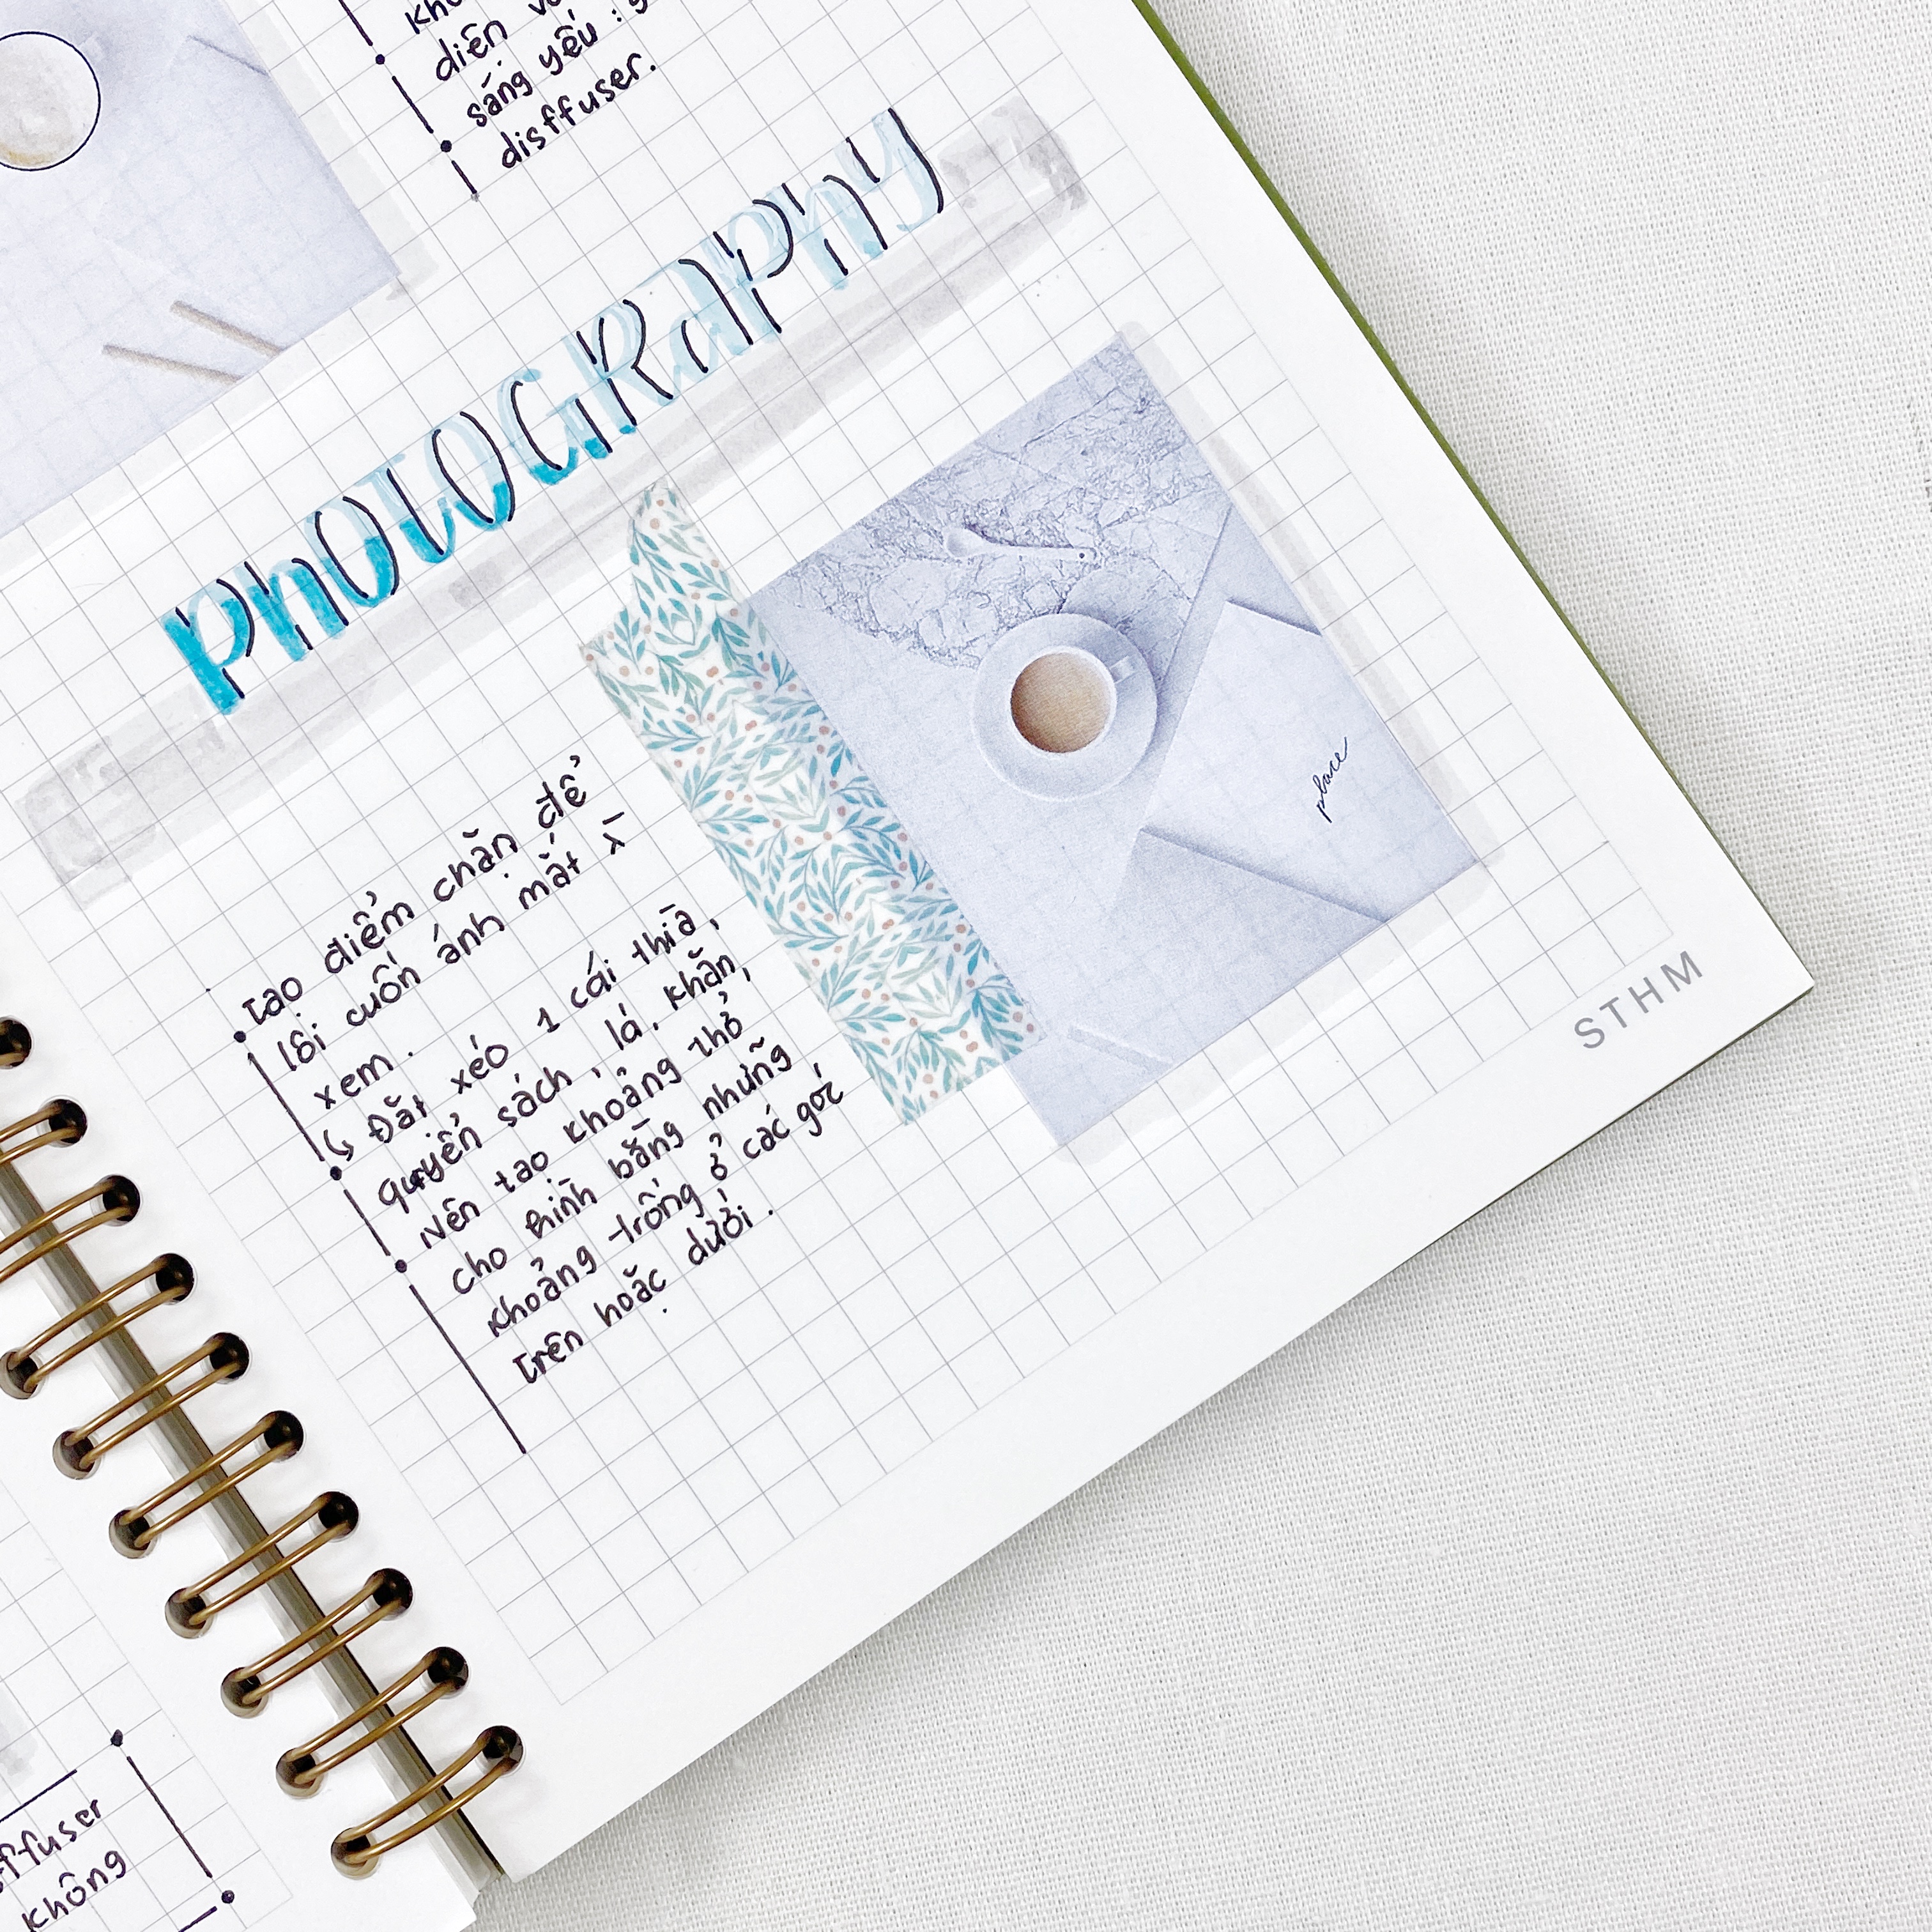 diện
sáng yếu :
disffuser.
PhOTOGRaPhY
Tạo điểm chặn để
lôi cuốn ánh mắt
xem.
↳ Đặt xéo 1 cái thìa,
quyển sách, lá, khăn,
Nên tạo khoảng thở
cho hình bằng những
khoảng trống ở các góc
trên hoặc dưới.
place
STHM
ffuser
không